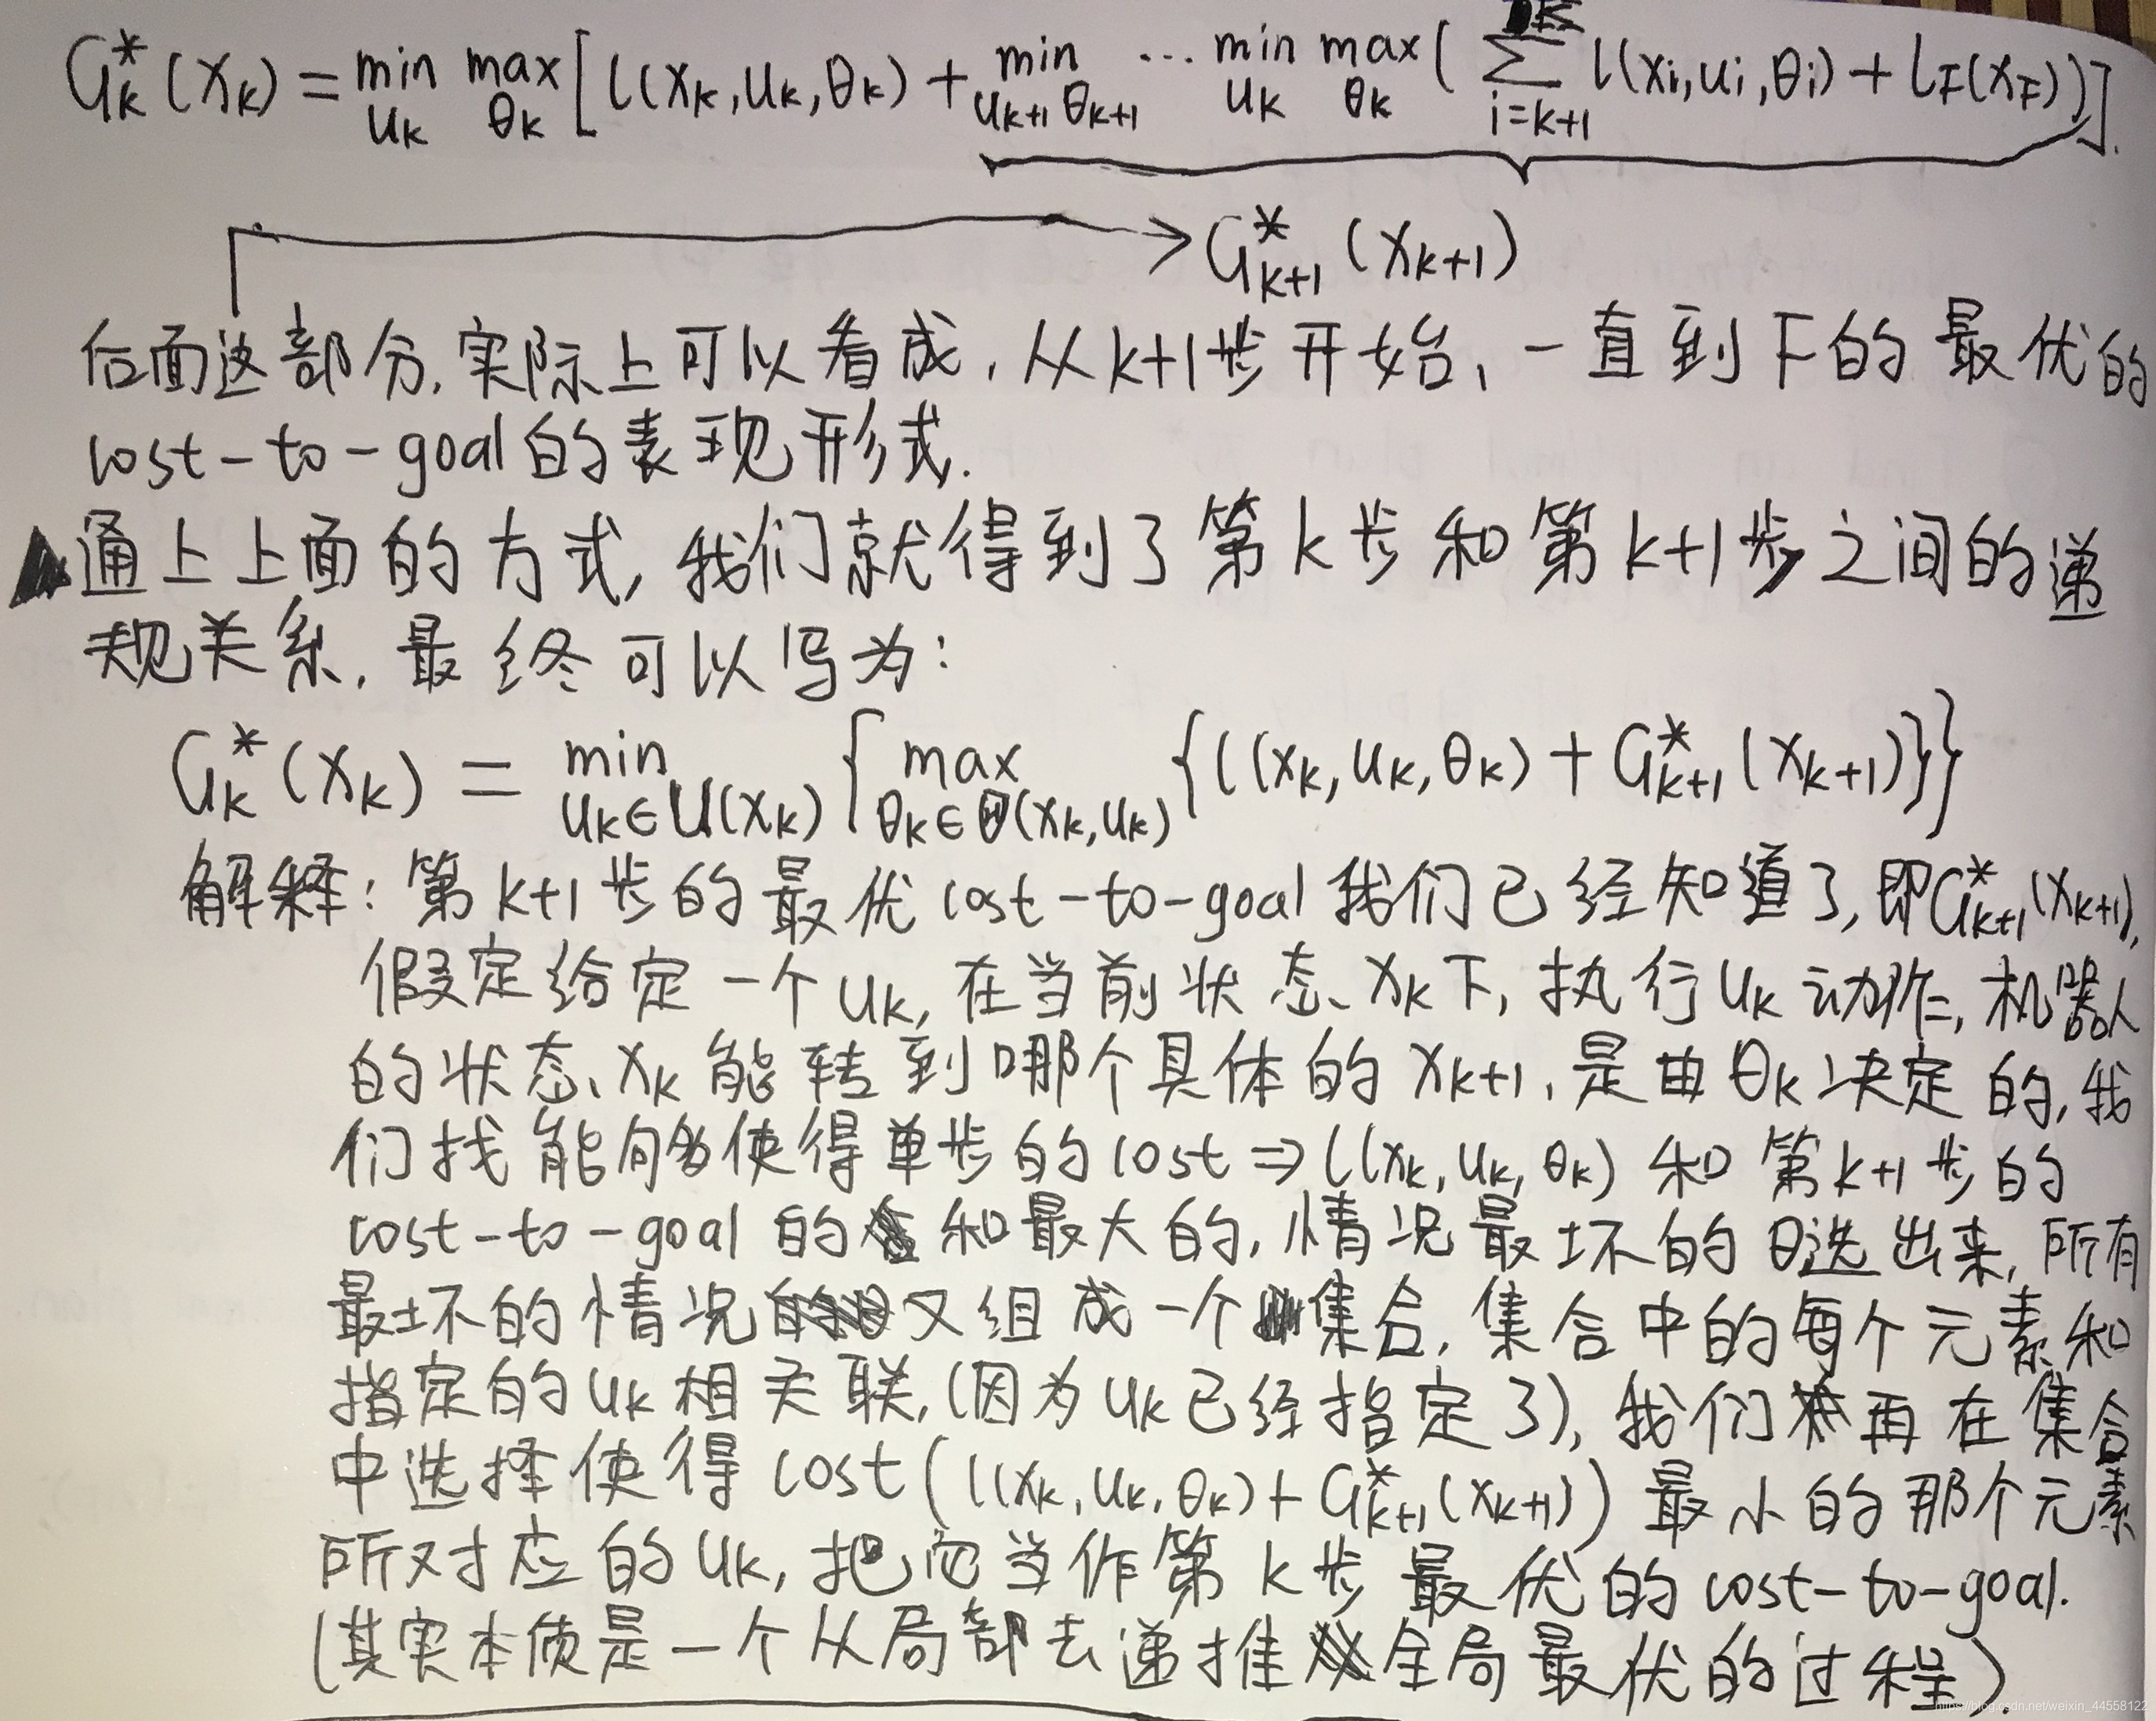 G*ₖ(xₖ) = min uₖ max θₖ [l(xₖ, uₖ, θₖ) + min uₖ₊₁ θₖ₊₁ ... min uₖ max θₖ (∑ i=k+1 K l(xᵢ, uᵢ, θᵢ) + l_F(x_F))].
G*ₖ₊₁(xₖ₊₁)
后面这部分,实际上可以看成,从k+1步开始、一直到F的最优的
cost-to-goal的表现形式.
▲通上上面的方式,我们就得到了第k步和第k+1步之间的递
规关系,最终可以写为:
G*ₖ(xₖ) = min uₖ∈U(xₖ) {max θₖ∈Θ(xₖ,uₖ) {l(xₖ, uₖ, θₖ) + G*ₖ₊₁(xₖ₊₁)}}
解释:第k+1步的最优cost-to-goal我们已经知道了,即G*ₖ₊₁(xₖ₊₁),
假定给定一个uₖ,在当前状态xₖ下,执行uₖ动作,机器人
的状态xₖ能转到哪个具体的xₖ₊₁,是由θₖ决定的,我
们找能够使得单步的cost⇒l(xₖ,uₖ,θₖ)和第k+1步的
cost-to-goal的和最大的,情况最坏的θ选出来,所有
最坏的情况又组成一个集合,集合中的每个元素和
指定的uₖ相关联,(因为uₖ已经指定了),我们再在集合
中选择使得cost(l(xₖ,uₖ,θₖ)+G*ₖ₊₁(xₖ₊₁))最小的那个元素
所对应的uₖ,把它当作第k步最优的cost-to-goal.
(其实本质是一个从局部去递推全局最优的过程).
https://blog.csdn.net/weixin_44558122